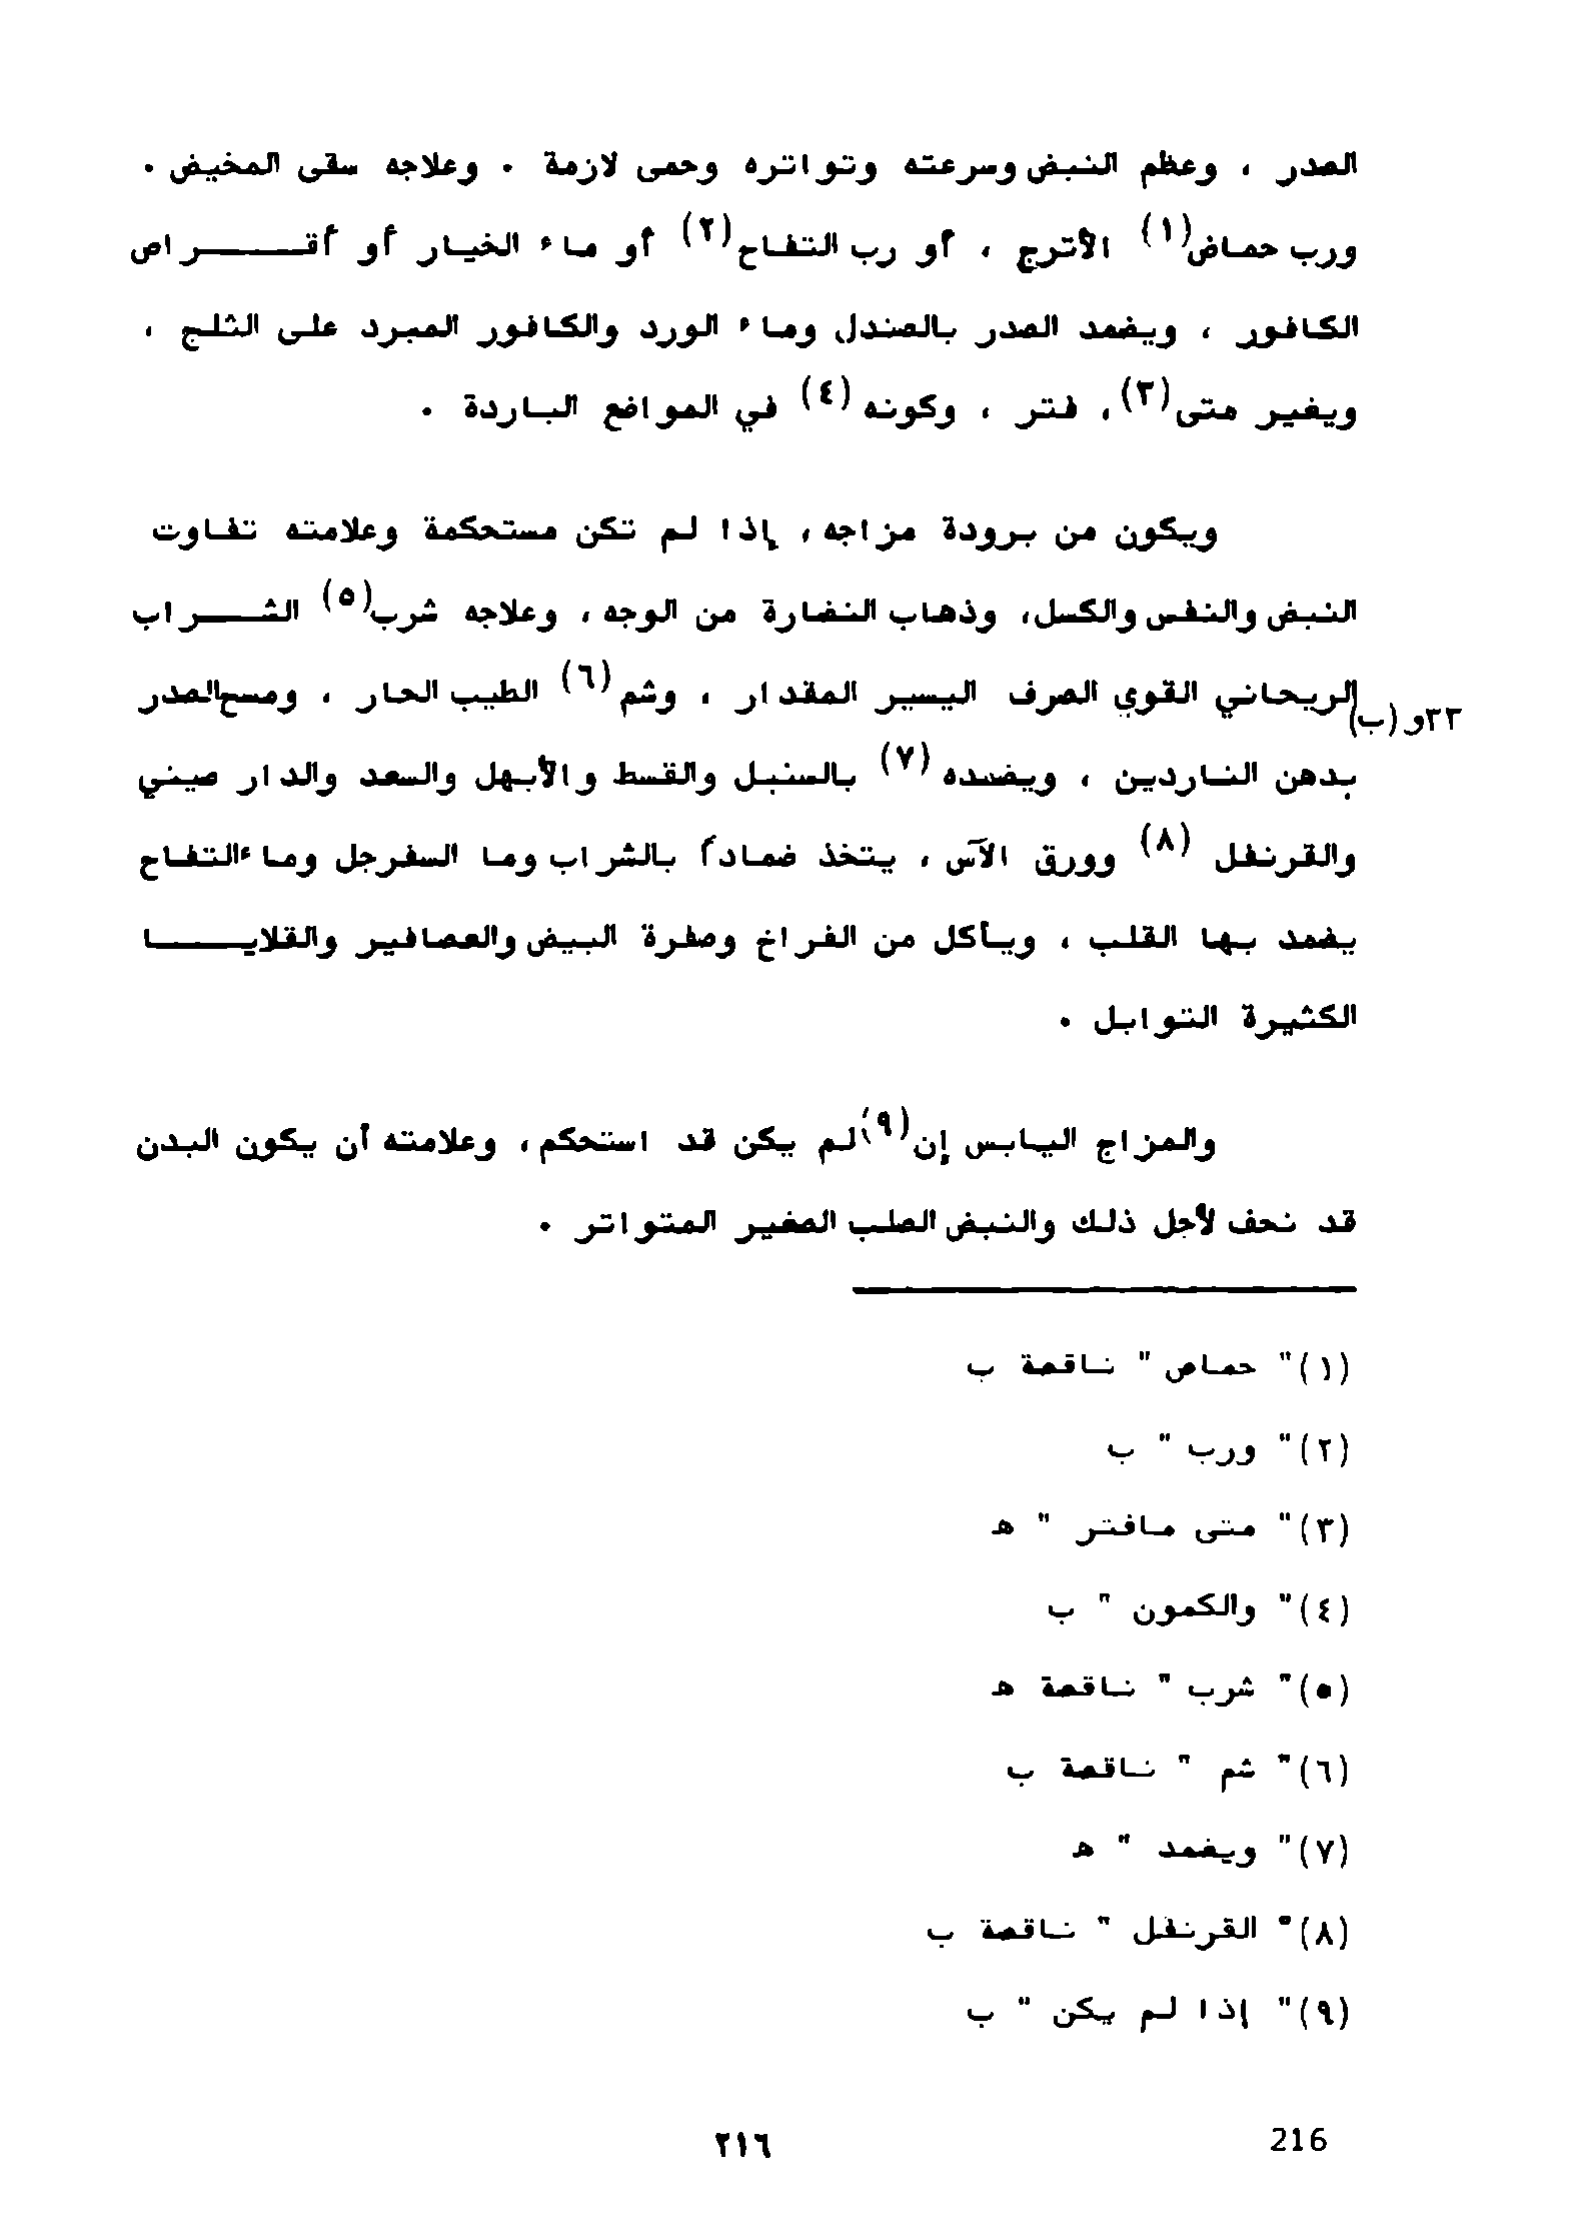 الصدر ، وعظم النبض وسرعته وتواتره وحمى لازمة . وعلاجه سقى المخيض .
ورب حماض(١) الأترج ، أو رب التفاح(٢) أو ماء الخيار أو أقـــراص
الكافور ، ويضمد الصدر بالصندل وماء الورد والكافور المبرد على الثلج ،
ويغير متى(٣)، فتر ، وكونه (٤) في المواضع الباردة .
ويكون من برودة مزاجه ، إذا لم تكن مستحكمة وعلامته تفاوت
النبض والنفس والكسل، وذهاب النضارة من الوجه ، وعلاجه شرب(٥) الشـــراب
الريحاني القوي الصرف اليسير المقدار ، وشم(٦) الطيب الحار ، ومسح الصدر
٣٣و(ب)
بدهن الناردين ، ويضمده (٧) بالسنبل والقسط والأبهل والسعد والدار صيني
والقرنفل (٨) وورق الآس ، يتخذ ضماداً بالشراب وما السفرجل وماء التفاح
يضمد بها القلب ، ويأكل من الفراخ وصفرة البيض والعصافير والقلايـــا
الكثيرة التوابل .
والمزاج اليابس إن(٩) لم يكن قد استحكم ، وعلامته أن يكون البدن
قد نحف لأجل ذلك والنبض الصلب الصغير المتواتر .
(١)" حماص " ناقصة ب
(٢)" ورب " ب
(٣)" متى مافتر " ه
(٤)" والكمون " ب
(٥)" شرب " ناقصة ه
(٦)" شم " ناقصة ب
(٧)" ويضمد " ه
(٨)" القرنفل " ناقصة ب
(٩)" إذا لم يكن " ب
٢١٦
216